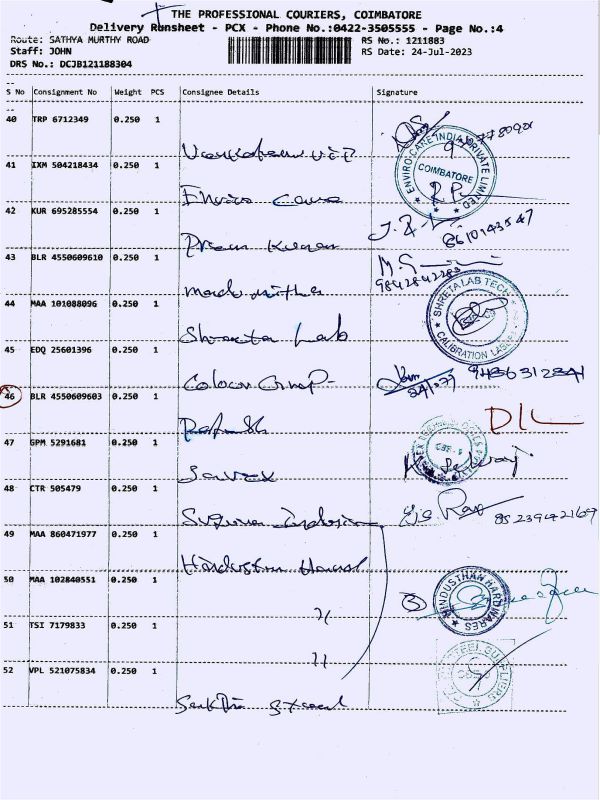 THE PROFESSIONAL COURIERS, COIMBATORE
Delivery Runsheet - PCX - Phone No.:0422-3505555 - Page No.:4
Route: SATHYA MURTHY ROAD
RS No.: 1211883
Staff: JOHN
RS Date: 24-Jul-2023
DRS No.: DCJB121188304
S No Consignment No Weight PCS Consignee Details Signature
40 TRP 6712349 0.250 1
ENVIRO CARE INDIA PRIVATE LIMITED
COIMBATORE
41 IXM 504218434 0.250 1
Enviro Care
42 KUR 695285554 0.250 1
8610143547
Prem Kumar
43 BLR 4550609610 0.250 1
9842842283
44 MAA 101088096 0.250 1
SHRETA LAB TECH
CALIBRATION LAB
Shreeta Lab
45 EDQ 25601396 0.250 1
Colour Group
9486312841
46 BLR 4550609603 0.250 1
D/L
47 GPM 5291681 0.250 1
Savex
48 CTR 505479 0.250 1
Suguna Industries
49 MAA 860471977 0.250 1
Hindustan Hard
50 MAA 102840551 0.250 1
HINDUSTHAN HARDWARES
"
51 TSI 7179833 0.250 1
"
52 VPL 521075834 0.250 1
STEEL SUPPLIERS
Sakthi Steel